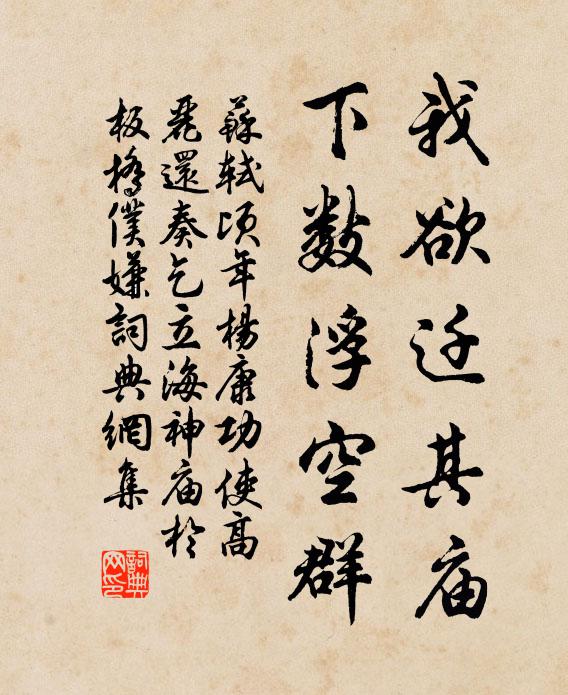 我欲迁其庙
下数浮空群
蘇軾頃年楊康功使高
麗還奏乞立海神庙於
板橋僕嫌詞典網集
詞典网印